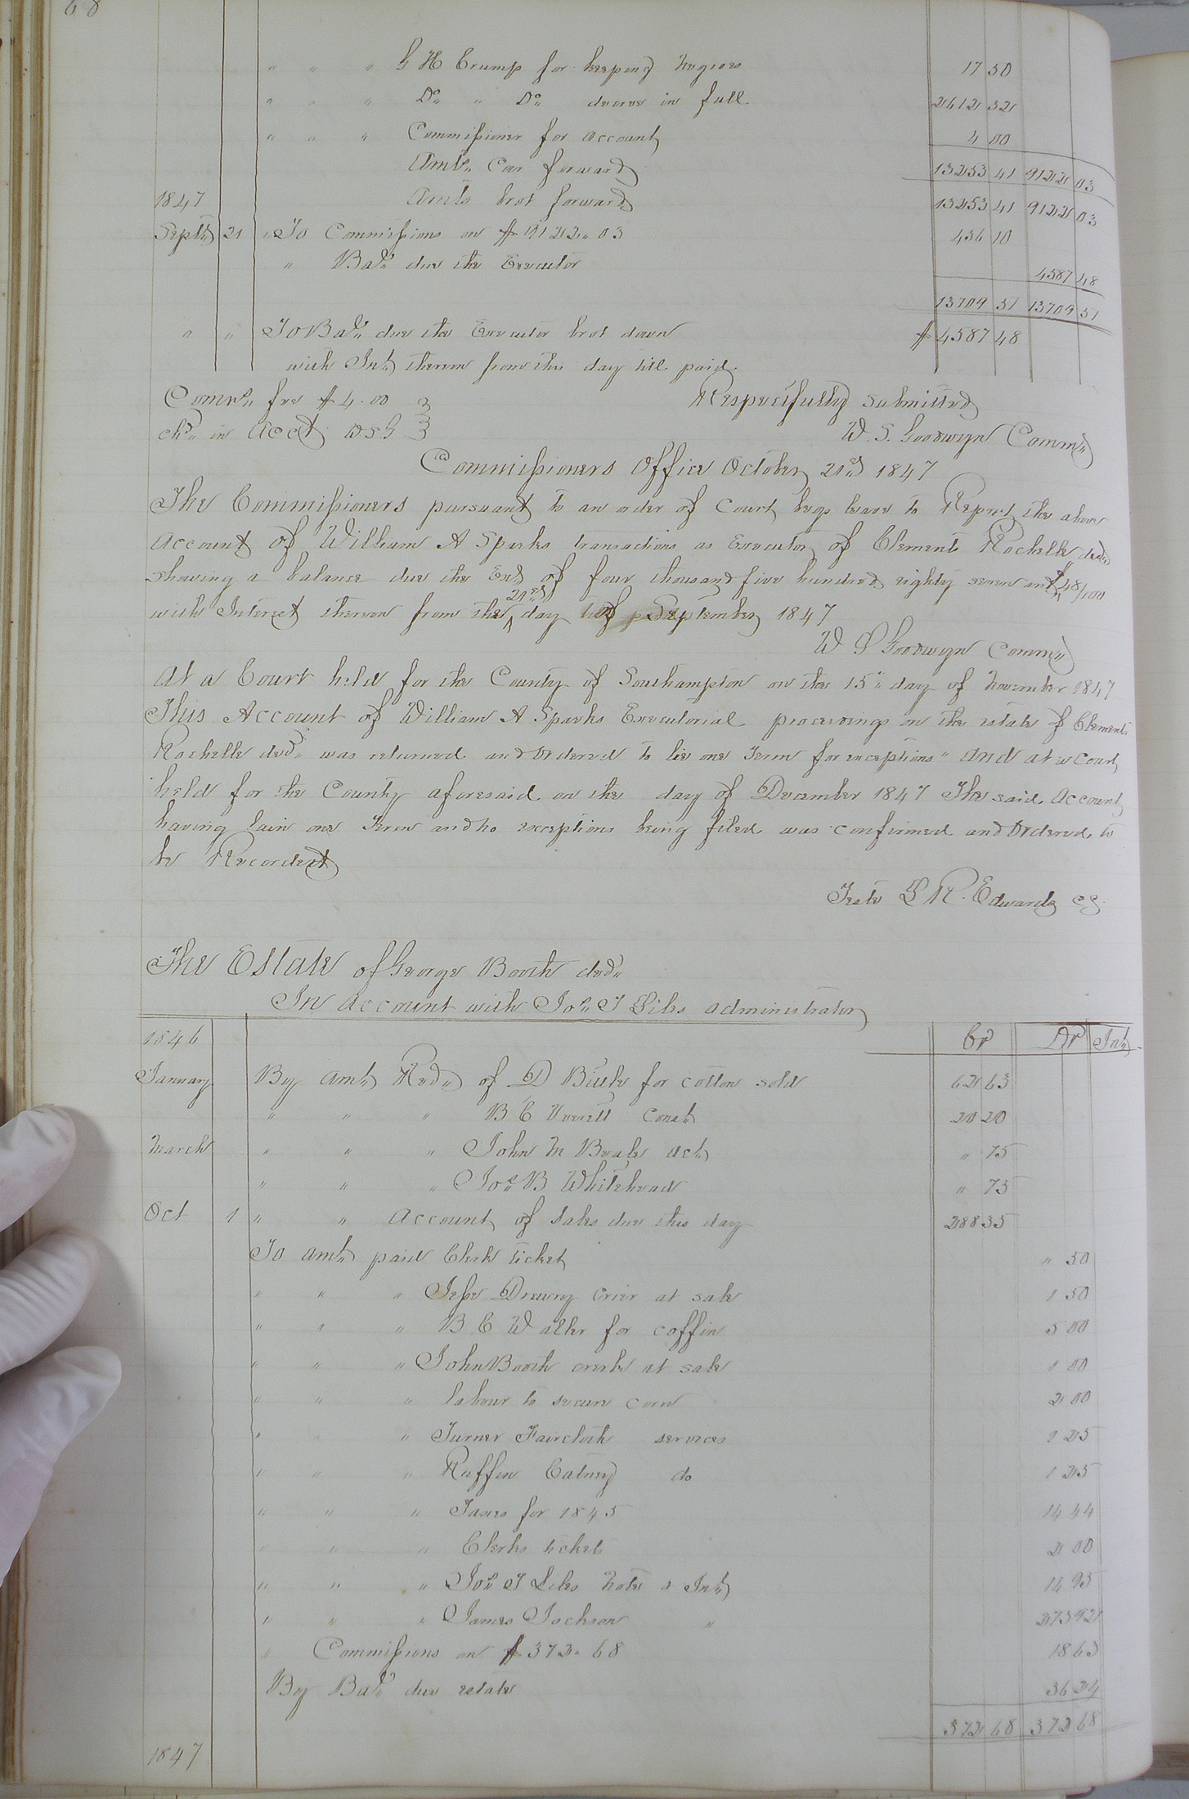 68
" " " G H Crump for keeping Negroes 17 50
" " " Do " Do decree in full 2612 32
" " " Commissioner for account 4 00
Amts Car forward 13253 41 9122 03
1847 Amts brot forward 13253 41 9122 03
Septr 21 " To Commissions on $9122.03 456 10
" Bale due the Executor 4587 48
13709 51 13709 51
" " To Bale due the Executor brot down $4587 48
with Int thereon from this day till paid.
Comrs fee $4.00 Respectfully submitted
chd in acct WSG W. S. Goodwyn Commr
Commissioners Office October 21st 1847
The Commissioners pursuant to an order of Court begs leave to Report the above
account of William A Sparks transactions as Executor of Clements Rochelle decd
showing a balance due the Exd of four thousand five hundred eighty seven and 48/100
with Interest thereon from the 21st day of September 1847
W S Goodwyn Commr
At a Court held for the County of Southampton on the 15th day of November 1847
This Account of William A Sparks Executorial proceedings on the estate of Clements
Rochelle decd was returned and Ordered to lie one Term for exceptions" and at a Court
held for the County aforesaid on the day of December 1847 The said Account
having lain one Term and no exceptions being filed was confirmed and Ordered to
be Recorded
Teste L R. Edwards CS.
The Estate of George Booth decd
In account with Jos T Liles administrator
1846 Cr Dr Int
January By amt Recd of D Butts for cotton sold 62 63
" " " B C Const 20 20
March " " " John M act " 75
" " " Jos B Whitehead " 75
Oct 1 " " Account of Sales due this day 288 35
To amt paid Clerk ticket " 50
" " " Jesse Drewry crier at sale 1 50
" " " B C Waller for coffin 5 00
" " " John Booth clerk at sale 1 00
" " " labour to secure corn 2 00
" " " Turner Faircloth services 1 25
" " " Ruffin do 1 25
" " " Taxes for 1845 14 44
" " " Clerks ticket 2 00
" " " Jos T Liles Note & Int 14 95
" " " James Jackson " 273 92
" Commissions on $372.68 18 63
By Bale due estate 36 24
372 68 372 68
1847